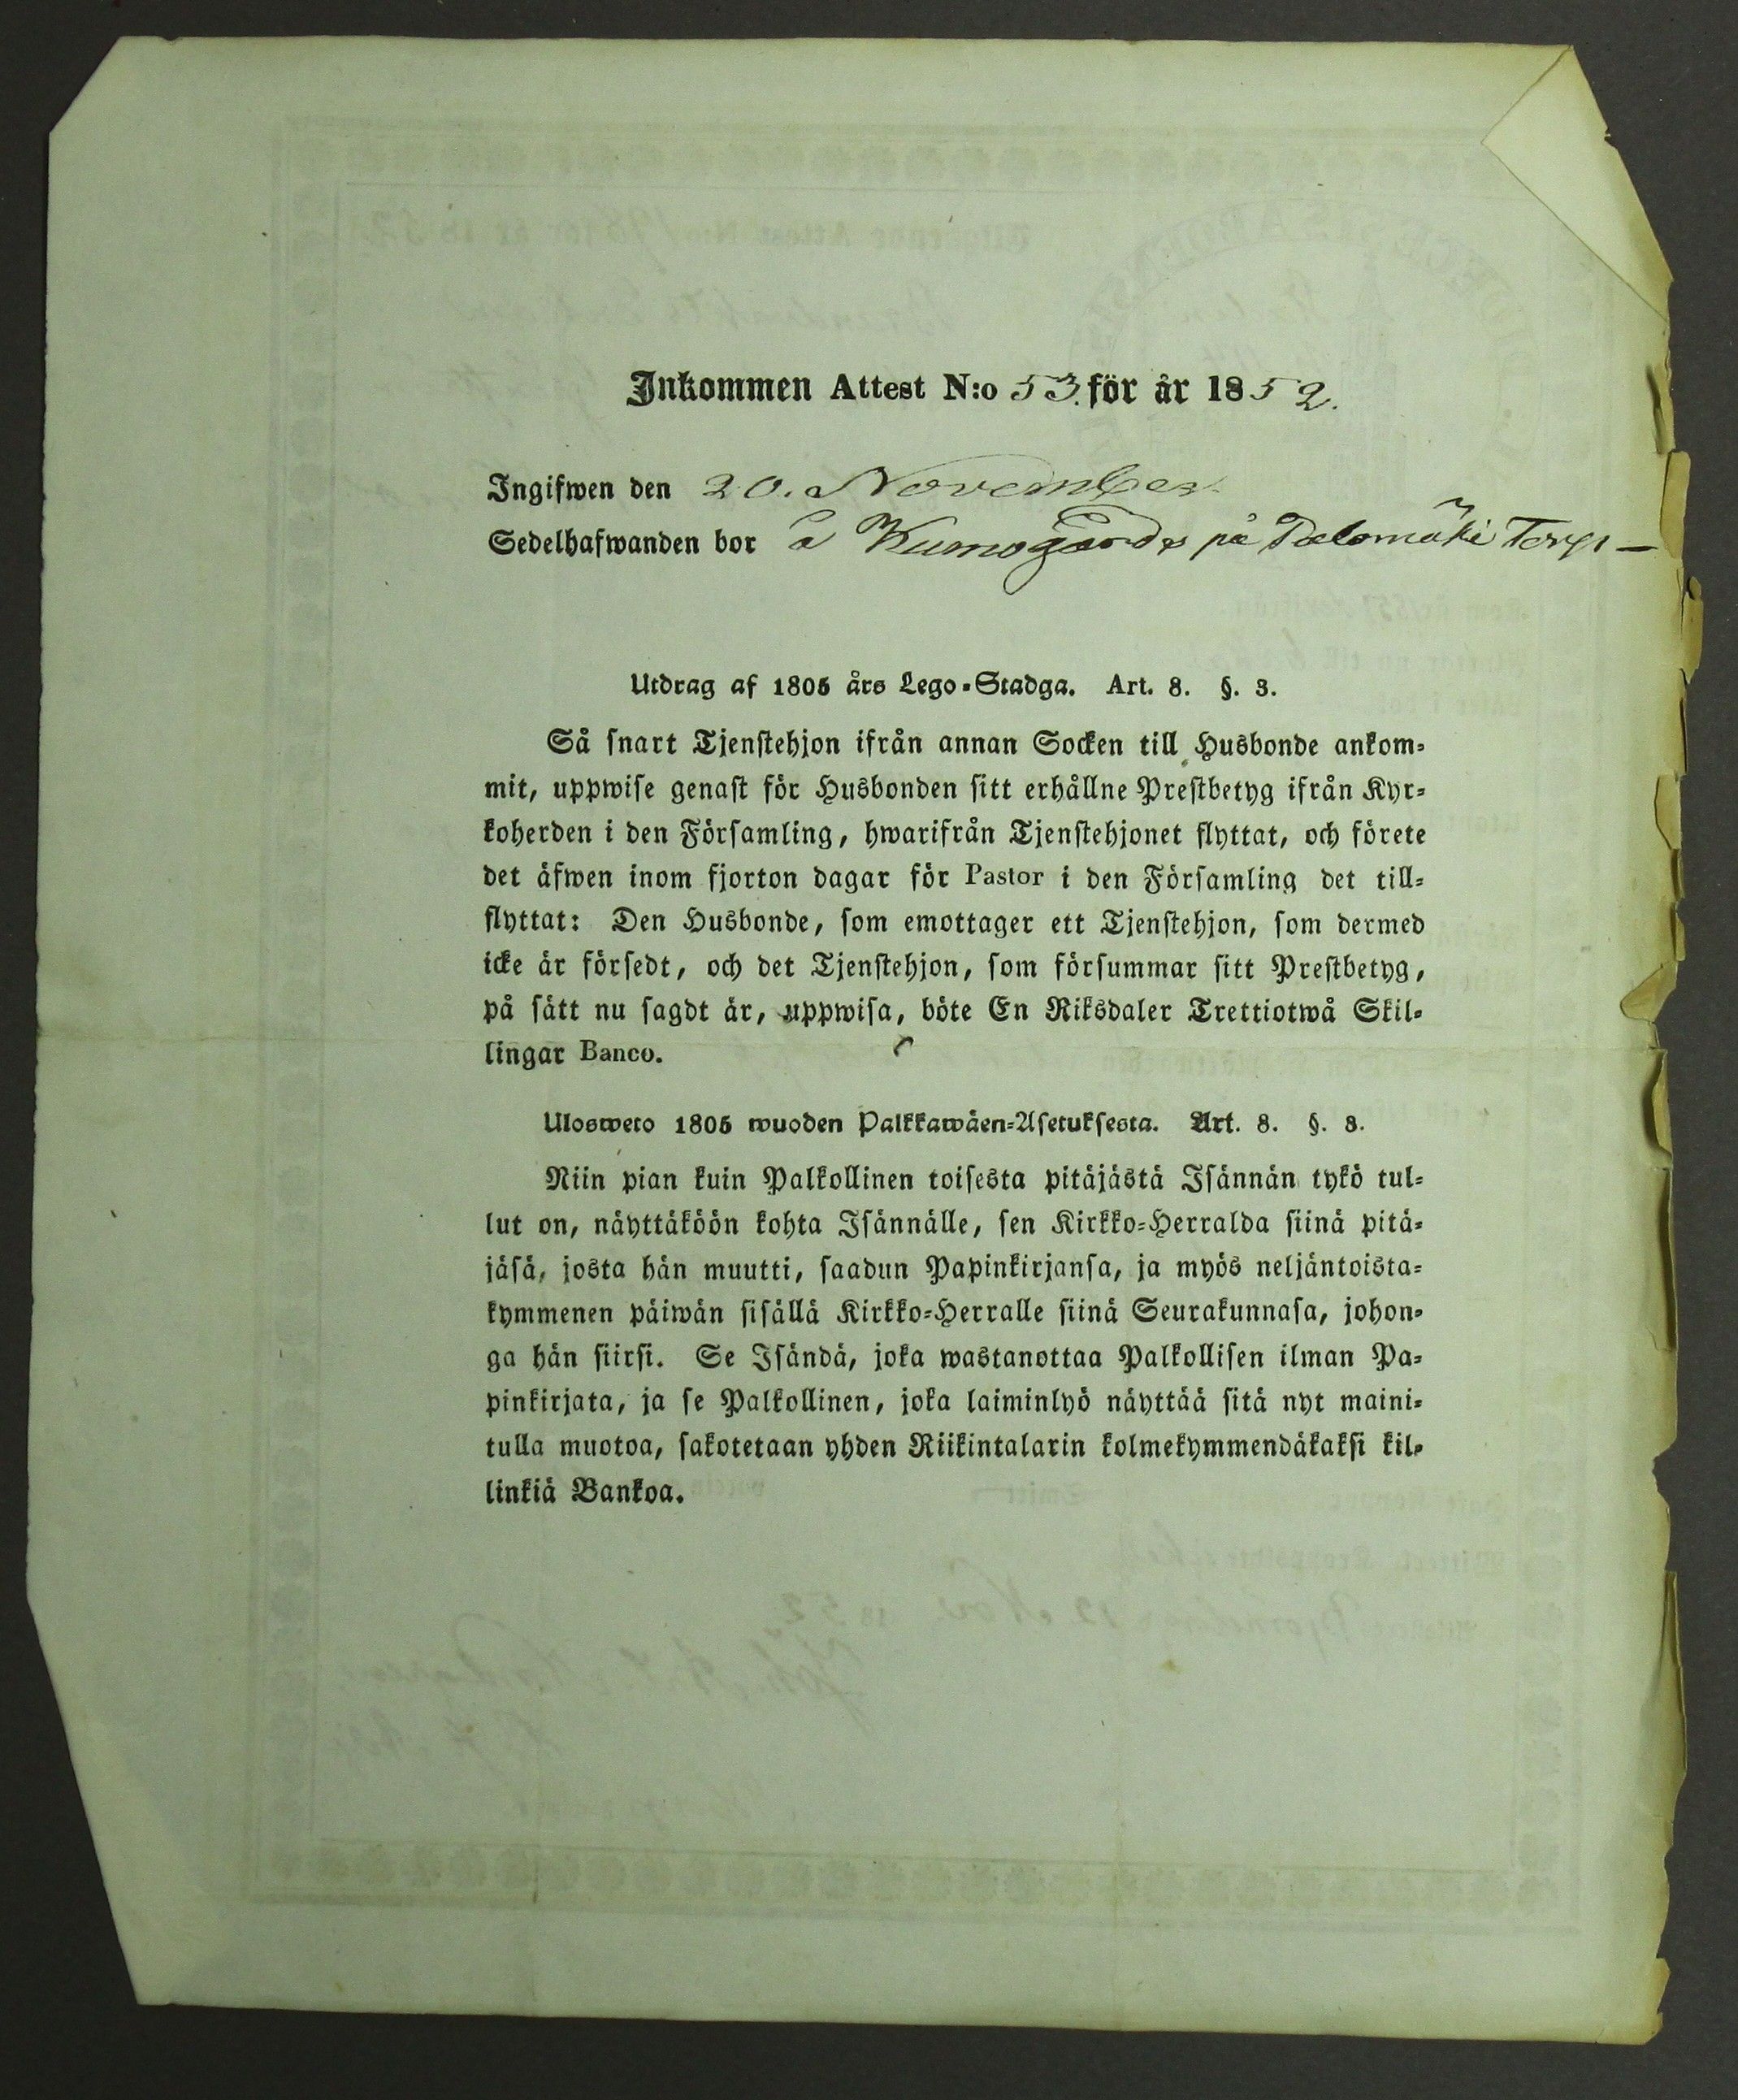 Inkommen Attest N:o 53. för år 1852.
Ingifwen den 20. November
Sedelhafwanden bor å Kumogårds på Palomäki Torp
Utdrag af 1805 års Lego-Stadga. Art. 8. §. 3.
Så snart Tjenstehjon ifrån annan Socken till Husbonde ankom-
mit, uppwise genast för Husbonden sitt erhållne Prestbetyg ifrån Kyr-
koherden i den Församling, hwarifrån Tjenstehjonet flyttat, och förete
det äfwen inom fjorton dagar för Pastor i den Församling det till-
flyttat: Den Husbonde, som emottager ett Tjenstehjon, som dermed
icke är försedt, och det Tjenstehjon, som försummar sitt Prestbetyg,
på sätt nu sagdt är, uppwisa, böte En Riksdaler Trettiotwå Skil-
lingar Banco.
Ulosweto 1805 wuoden Palkkawäen-Asetuksesta. Art. 8. §. 3.
Niin pian kuin Palkollinen toisesta pitäjästä Isännän tykö tul-
lut on, näyttäköön kohta Isännälle, sen Kirkko-Herralda siinä pitä-
jäsä, josta hän muutti, saadun Papinkirjansa, ja myös neljäntoista-
kymmenen päiwän sisällä Kirkko-Herralle siinä Seurakunnasa, johon-
ga hän siirsi. Se Isändä, joka wastanottaa Palkollisen ilman Pa-
pinkirjata, ja se Palkollinen, joka laiminlyö näyttää sitä nyt maini-
tulla muotoa, sakotetaan yhden Riikintalarin kolmekymmendäkaksi kil-
linkiä Bankoa.